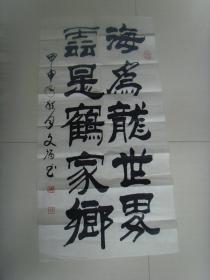 海為龍世界
雲是鶴家鄉
甲申